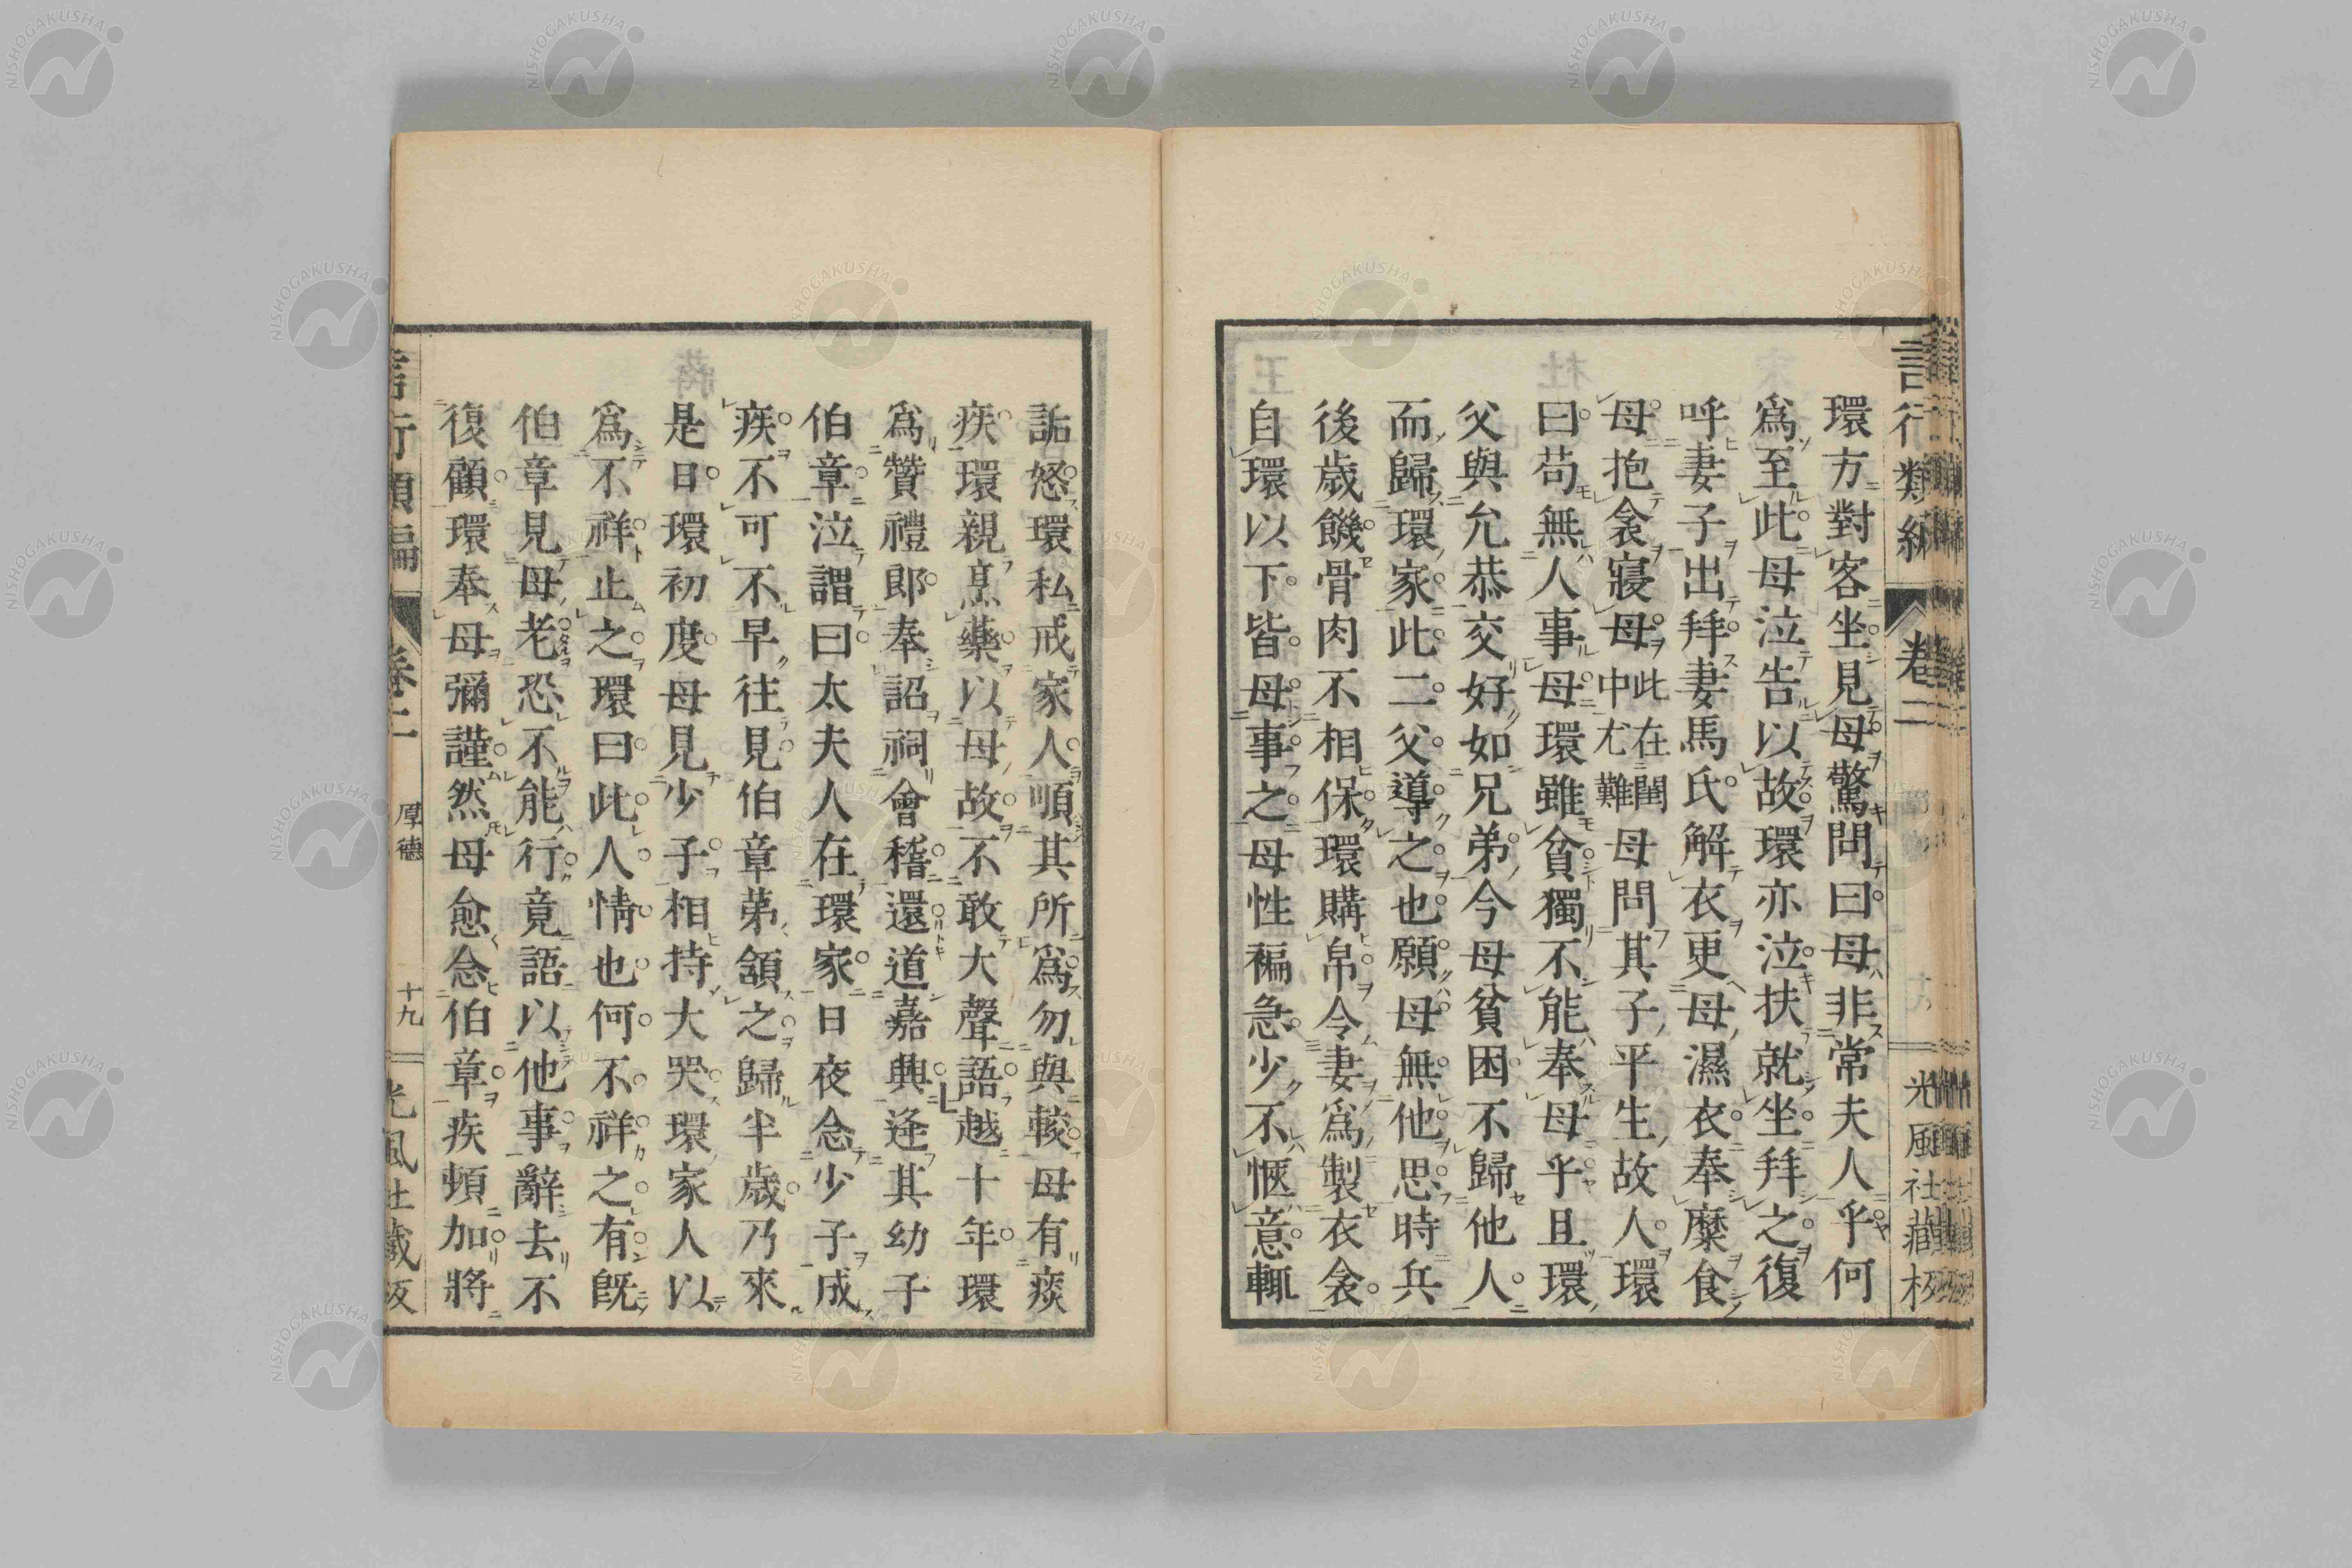 言行類編 卷二 光風社藏板
環方對客坐見母驚問曰母非常夫人乎何
爲至此母泣告以故環亦泣扶就坐拜之復
呼妻子出拜妻馬氏解衣更母濕衣奉糜食
母抱衾寢母此在閨中尤難母問其子平生故人環
曰苟無人事母環雖貧獨不能奉母乎且環
父與允恭交好如兄弟今母貧困不歸他人
而歸環家此二父導之也願母無他思時兵
後歲饑骨肉不相保環購帛令妻爲製衣衾
自環以下皆母事之母性褊急少不愜意輒
詬怒環私戒家人順其所爲勿與較母有痰
疾環親烹藥以母故不敢大聲語越十年環
爲贊禮郎奉詔祠會稽還道嘉興逢其幼子
伯章泣謂曰太夫人在環家日夜念少子成
疾不可不早往見伯章第頷之歸半歲乃來
是日環初度母見少子子相持大哭環家人以
爲不祥止之環曰此人情也何不祥之有既
伯章見母老恐不能行竟語以他事辭去不
復顧環奉母彌謹然母愈念伯章疾頓加將
言行類編 卷二 厚德 十九 光風社藏板
NISHOGAKUSHA